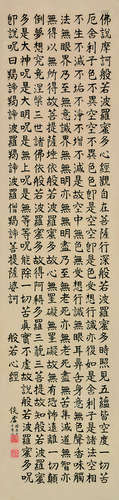 佛說摩訶般若波羅蜜多心經觀自在菩薩行深般若波羅蜜多時照見五蘊皆空度一切苦
厄舍利子色不異空空不異色色即是空空即是色受想行識亦復如是舍利子是諸法空相不
生不滅不垢不淨不增不減是故空中無色無受想行識無眼耳鼻舌身意無色聲香味觸
法無眼界乃至無意識界無無明亦無無明盡乃至無老死亦無老死盡無苦集滅道無智亦
無得以無所得故菩提薩埵依般若波羅蜜多故心無罣礙無罣礙故無有恐怖遠離一切顛
倒夢想究竟涅槃三世諸佛依般若波羅蜜多故得阿耨多羅三藐三菩提故知般若波羅蜜
多是大神呪是大明呪是無上呪是無等等呪能除一切苦真實不虛故說般若波羅蜜多呪
即說呪曰揭諦揭諦波羅揭諦波羅僧揭諦菩提薩婆訶 般若心經